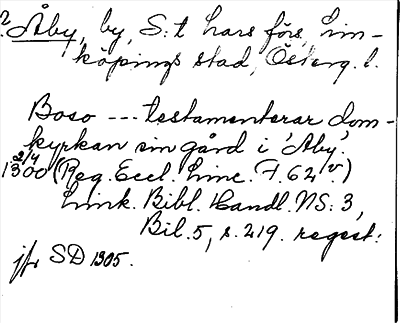 2. Åby, by, S:t Lars förs, Lin-
köpings stad, Österg. l.
Boso --- testamenterar dom-
kyrkan sin gård i 'Aby'.
2/4
1300 (Reg. Eccl. Linc. F. 62 v.)
Link. Bibl. Handl. NS: 3,
Bil. 5, s. 219. regest:
jfr SD 1305.